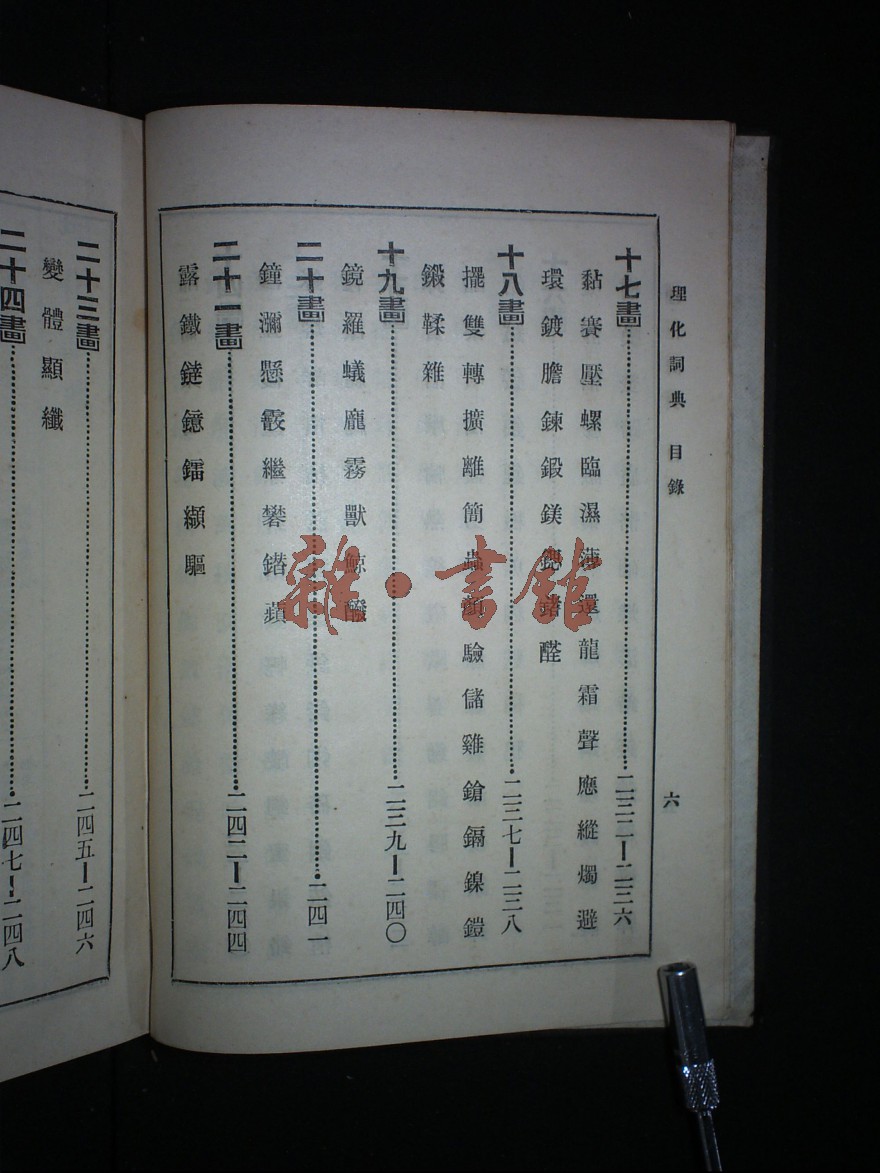 理化詞典 目錄 六
十七畫……二三二—二三六
黏賽壓螺臨濕薄還龍霜聲應縱燭避
環鍍膽鍊鍛鎂鍶鍺醛
十八畫……二三七—二三八
擺雙轉擴離簡蟲顏驗儲雞鎗鎘鎳鎧
鍛鞣雜
十九畫……二三九—二四〇
鏡羅蟻龐霧獸鯨
二十畫……二四一
鐘瀰懸霰繼礬鐠蘋
二十一畫……二四二—二四四
露鐵鐽鐿鐳纈驅
二十三畫……二四五—二四六
變體顯纖
二十四畫……二四七—二四八
雜·書館